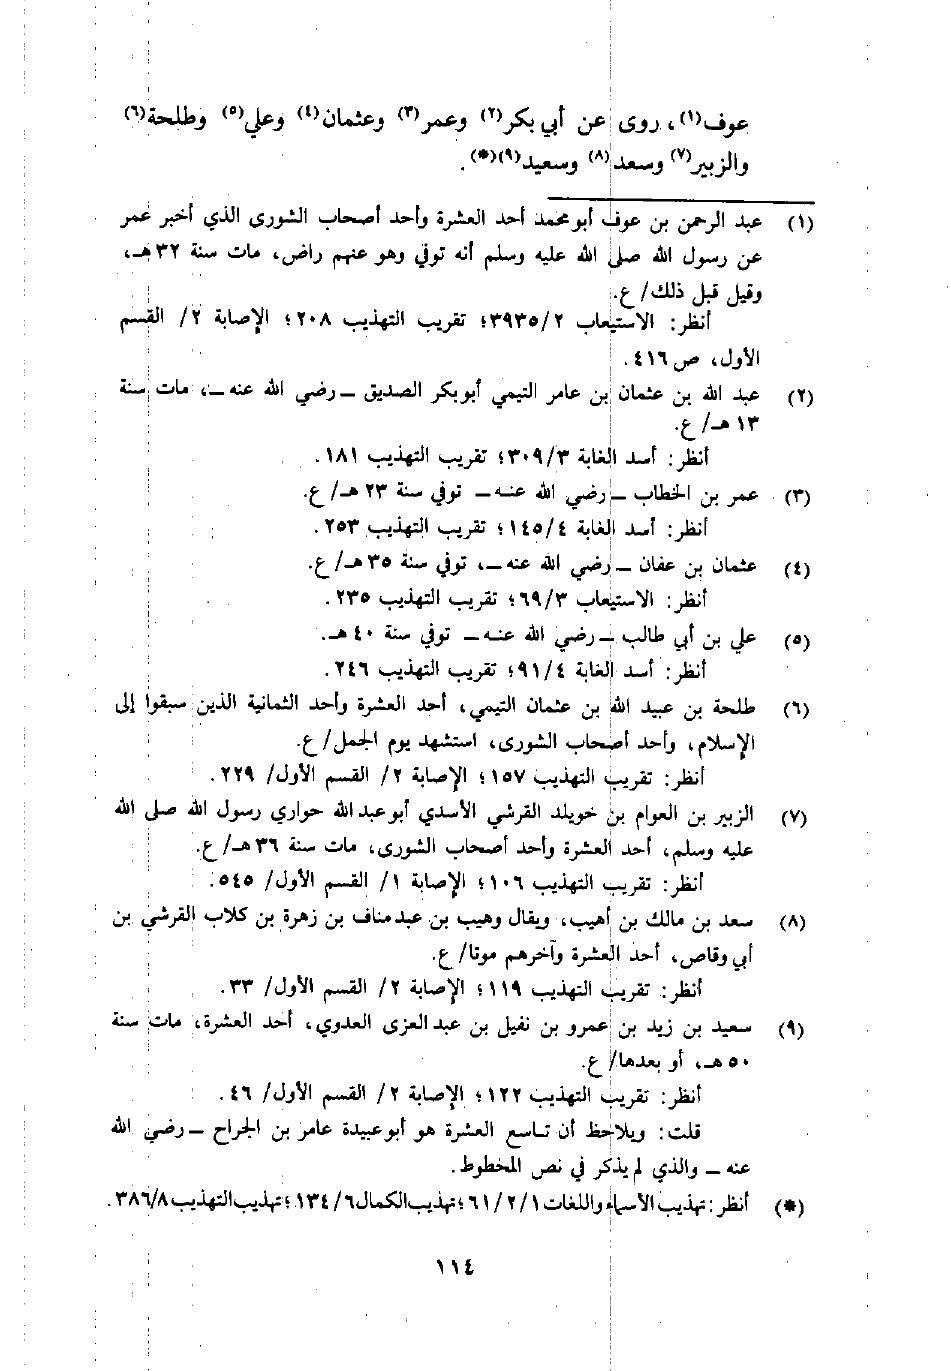 عوف(١)، روى عن أبي بكر(٢) وعمر(٣) وعثمان(٤) وعلي(٥) وطلحة(٦)
والزبير(٧) وسعد(٨) وسعيد(٩)(*).
(١) عبد الرحمن بن عوف أبو محمد أحد العشرة وأحد أصحاب الشورى الذي أخبر عمر
عن رسول الله صلى الله عليه وسلم أنه توفي وهو عنهم راض، مات سنة ٣٢ هـ،
وقيل قبل ذلك/ ع.
أنظر: الاستيعاب ٣٩٣٥/٢؛ تقريب التهذيب ٢٠٨؛ الإصابة ٢/ القسم
الأول، ص ٤١٦.
(٢) عبد الله بن عثمان بن عامر التيمي أبو بكر الصديق ــ رضي الله عنه ــ، مات سنة
١٣ هـ/ ع.
أنظر: أسد الغابة ٣٠٩/٣؛ تقريب التهذيب ١٨١.
(٣) عمر بن الخطاب ــ رضي الله عنه ــ توفي سنة ٢٣ هـ/ ع.
أنظر: أسد الغابة ١٤٥/٤؛ تقريب التهذيب ٢٥٣.
(٤) عثمان بن عفان ــ رضي الله عنه ــ، توفي سنة ٣٥ هـ/ ع.
أنظر: الاستيعاب ٦٩/٣؛ تقريب التهذيب ٢٣٥.
(٥) علي بن أبي طالب ــ رضي الله عنه ــ توفي سنة ٤٠ هـ.
أنظر: أسد الغابة ٩١/٤؛ تقريب التهذيب ٢٤٦.
(٦) طلحة بن عبيد الله بن عثمان التيمي، أحد العشرة وأحد الثمانية الذين سبقوا إلى
الإسلام، وأحد أصحاب الشورى، استشهد يوم الجمل/ ع.
أنظر: تقريب التهذيب ١٥٧؛ الإصابة ٢/ القسم الأول/ ٢٢٩.
(٧) الزبير بن العوام بن خويلد القرشي الأسدي أبو عبد الله حواري رسول الله صلى الله
عليه وسلم، أحد العشرة وأحد أصحاب الشورى، مات سنة ٣٦ هـ/ ع.
أنظر: تقريب التهذيب ١٠٦؛ الإصابة ١/ القسم الأول/ ٥٤٥.
(٨) سعد بن مالك بن أهيب، ويقال وهيب بن عبد مناف بن زهرة بن كلاب القرشي بن
أبي وقاص، أحد العشرة وآخرهم موتا/ ع.
أنظر: تقريب التهذيب ١١٩؛ الإصابة ٢/ القسم الأول/ ٣٣.
(٩) سعيد بن زيد بن عمرو بن نفيل بن عبد العزى العدوي، أحد العشرة، مات سنة
٥٠ هـ، أو بعدها/ ع.
أنظر: تقريب التهذيب ١٢٢؛ الإصابة ٢/ القسم الأول/ ٤٦.
قلت: ويلاحظ أن تاسع العشرة هو أبو عبيدة عامر بن الجراح ــ رضي الله
عنه ــ والذي لم يذكر في نص المخطوط.
(*) أنظر: تهذيب الأسماء واللغات ٦١/٢/١؛ تهذيب الكمال ١٣٤/٦؛ تهذيب التهذيب ٣٨٦/٨.
١١٤